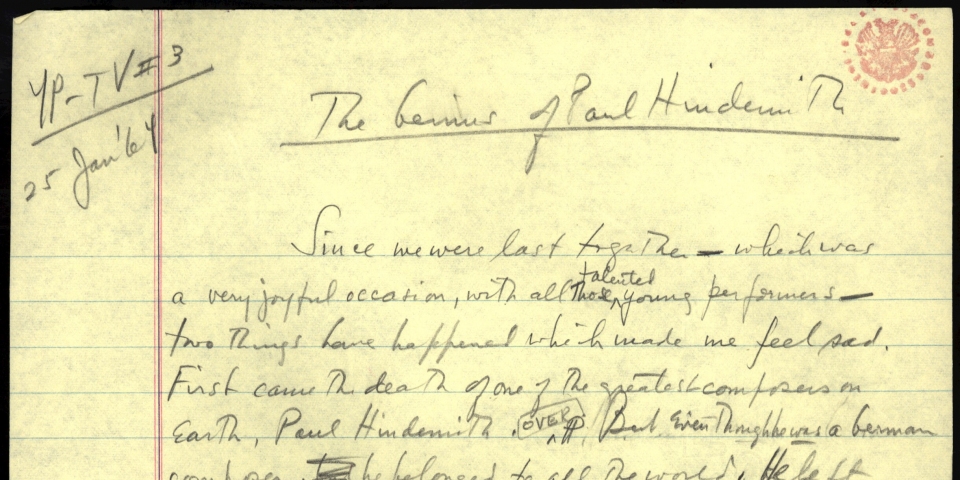 YP-TV #3
25 Jan '64
The Genius of Paul Hindemith
Since we were last together — which was
a very joyful occasion, with all those talented young performers —
two things have happened which made me feel sad.
First came the death of one of the greatest composers on
Earth, Paul Hindemith. OVER ¶ But even though he was a German
composer, he belonged to all the world. He left